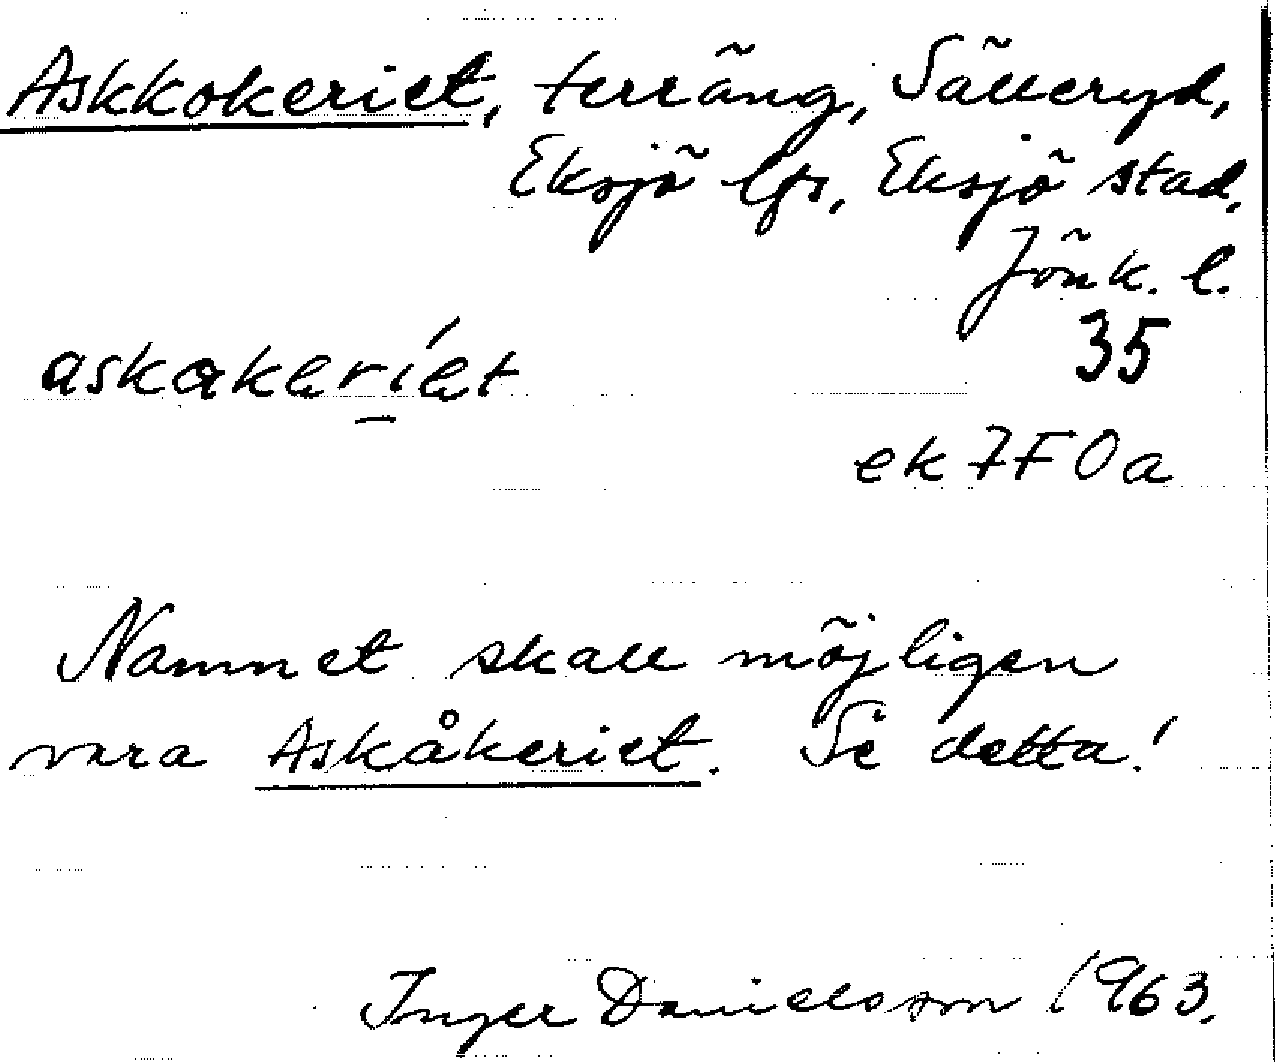 Askkokeriet, terräng, Sälleryd,
Eksjö lfs, Eksjö stad,
Jönk. l.
35
askakeríet
ek 7F 0a
Namnet skall möjligen
vara Askåkeriet. Se detta!
Inger Danielsson 1963.